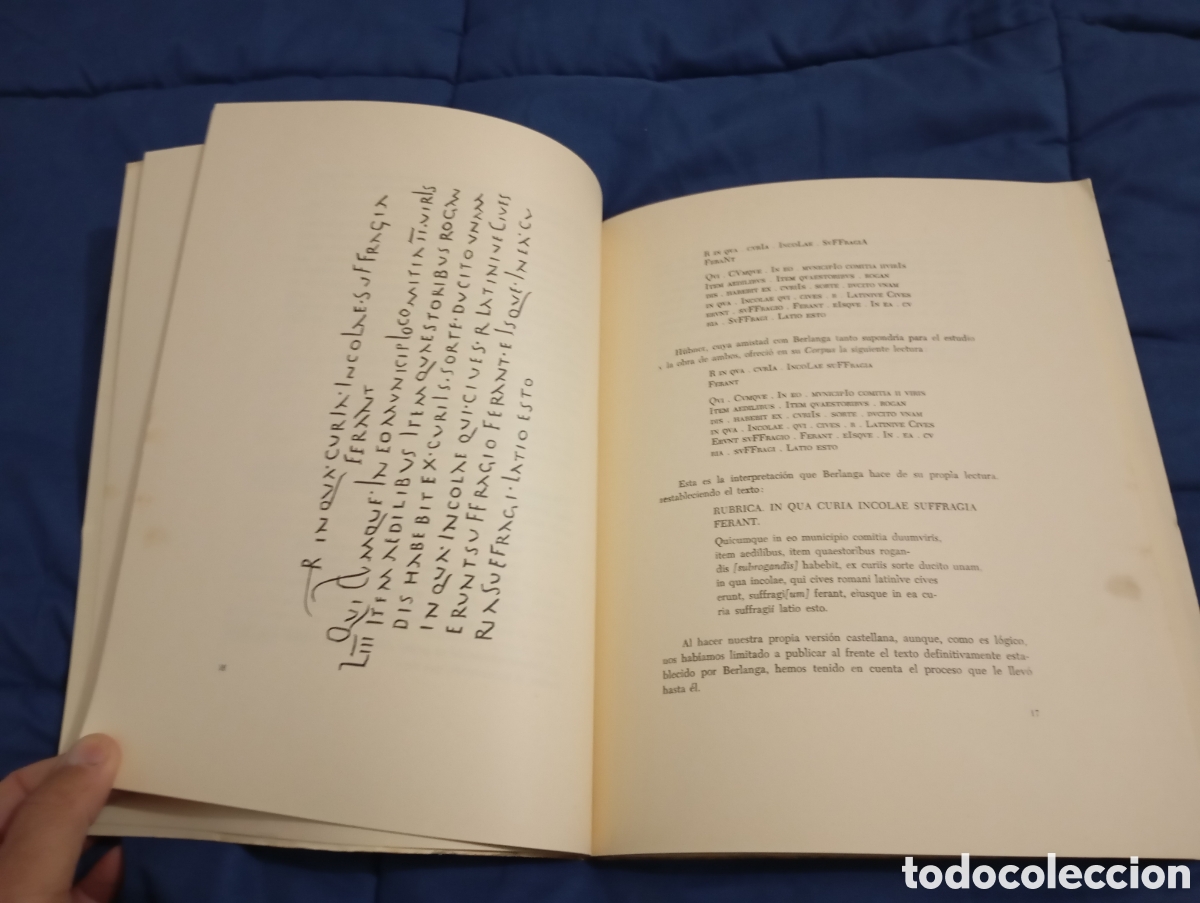 R IN QVA · CVRIA · INCOLAE · SVFFRAGIA
FERANT
LIII QVI CVMQVE · IN EO MVNICIPIO COMITIA II VIRIS
ITEM AEDILIBVS ITEM QVAESTORIBVS ROGAN
DIS HABEBIT EX · CVRIIS · SORTE · DVCITO VNAM
IN QVA · INCOLAE QVI · CIVES · R LATINIVE CIVES
ERVNT SVFFRAGIO FERANT · EISQVE · IN EA · CV
RIA SVFFRAGI · LATIO ESTO
R IN QVA . CVRIA . INCOLAE . SVFFRAGIA
FERANT
QVI . CVMQVE . IN EO . MVNICIPIO COMITIA IIVIRIS
ITEM AEDILIBVS . ITEM QVAESTORIBVS . ROGAN
DIS . HABEBIT EX . CVRIIS . SORTE . DVCITO VNAM
IN QVA . INCOLAE QVI . CIVES . R . LATINIVE CIVES
ERVNT . SVFFRAGIO . FERANT . EISQVE . IN EA . CV
RIA . SVFFRAGI . LATIO ESTO
Hübner, cuya amistad con Berlanga tanto supondría para el estudio
y la obra de ambos, ofreció en su Corpus la siguiente lectura
R IN QVA . CVRIA . INCOLAE SVFFRAGIA
FERANT
QVI . CVMQVE . IN EO . MVNICIPIO COMITIA II VIRIS
ITEM AEDILIBVS . ITEM QVAESTORIBVS . ROGAN
DIS . HABEBIT EX . CVRIIS . SORTE . DVCITO VNAM
IN QVA . INCOLAE . QVI . CIVES . R . LATINIVE CIVES
ERVNT SVFFRAGIO . FERANT . EISQVE . IN . EA . CV
RIA . SVFFRAGI . LATIO ESTO
Esta es la interpretación que Berlanga hace de su propia lectura,
restableciendo el texto:
RUBRICA. IN QUA CURIA INCOLAE SUFFRAGIA
FERANT.
Quicumque in eo municipio comitia duumviris,
item aedilibus, item quaestoribus rogan-
dis [subrogandis] habebit, ex curiis sorte ducito unam,
in qua incolae, qui cives romani latinive cives
erunt, suffragi[um] ferant, eiusque in ea cu-
ria suffragii latio esto.
Al hacer nuestra propia versión castellana, aunque, como es lógico,
nos habíamos limitado a publicar al frente el texto definitivamente esta-
blecido por Berlanga, hemos tenido en cuenta el proceso que le llevó
hasta él.
17
todocoleccion